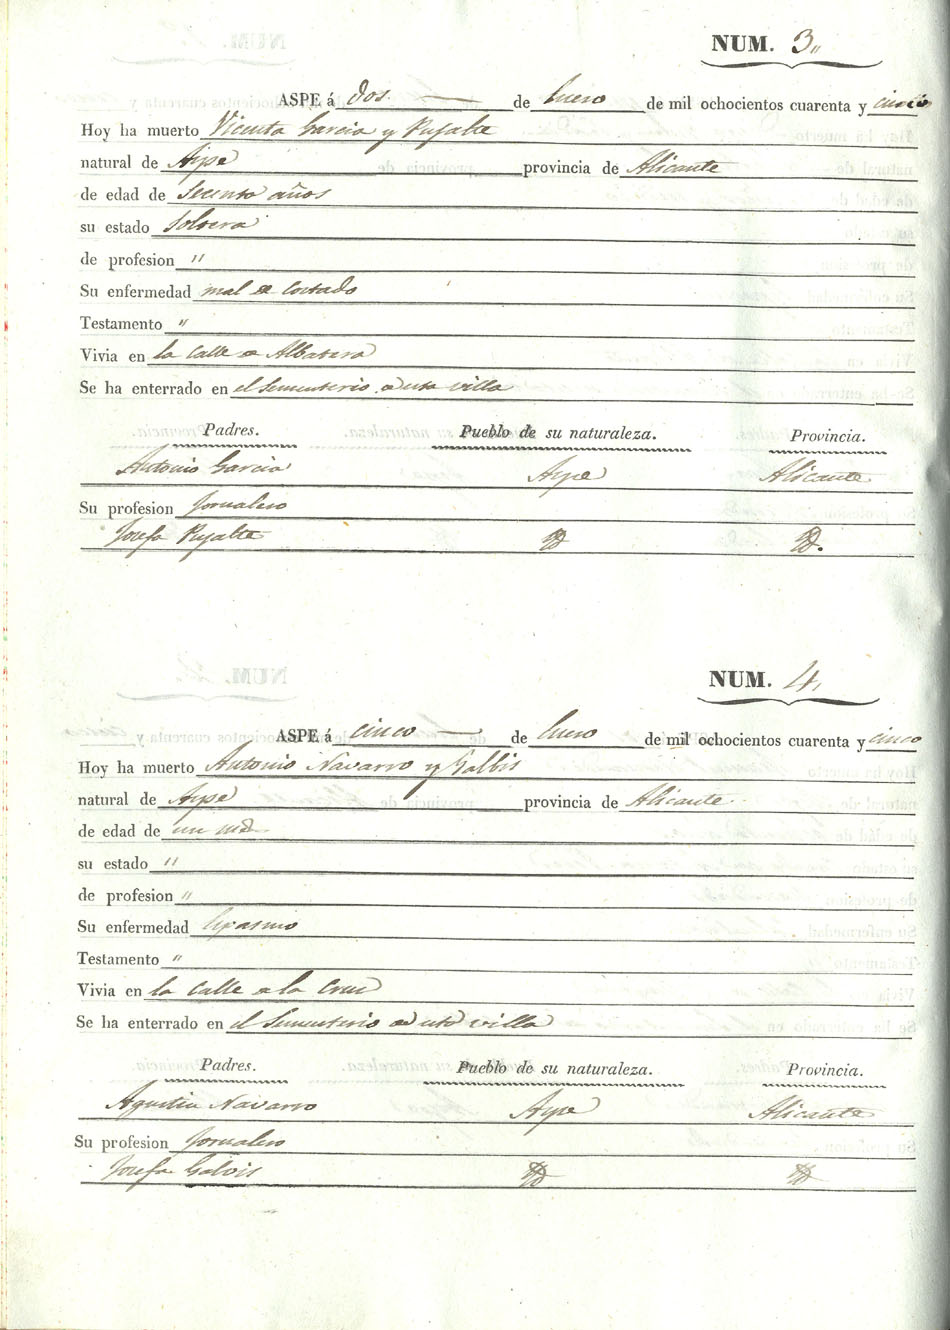 NUM. 3.
ASPE á dos de Enero de mil ochocientos cuarenta y cinco
Hoy ha muerto Vicenta Garcia y Pujalte
natural de Aspe provincia de Alicante
de edad de años
su estado Soltera
de profesion "
Su enfermedad mal de Costado
Testamento "
Vivia en la Calle de Albatera
Se ha enterrado en el Sementerio de esta villa
Padres. Pueblo de su naturaleza. Provincia.
Antonio Garcia Aspe Alicante
Su profesion Jornalero
Josefa Pujalte Yd Yd.
NUM. 4.
ASPE á cinco de Enero de mil ochocientos cuarenta y cinco
Hoy ha muerto Antonio Navarro y Galbis
natural de Aspe provincia de Alicante
de edad de un mes
su estado "
de profesion "
Su enfermedad Espasmo
Testamento "
Vivia en la Calle de la Cruz
Se ha enterrado en el Sementerio de esta villa
Padres. Pueblo de su naturaleza. Provincia.
Agustin Navarro Aspe Alicante
Su profesion Jornalero
Josefa Galvis Yd Yd